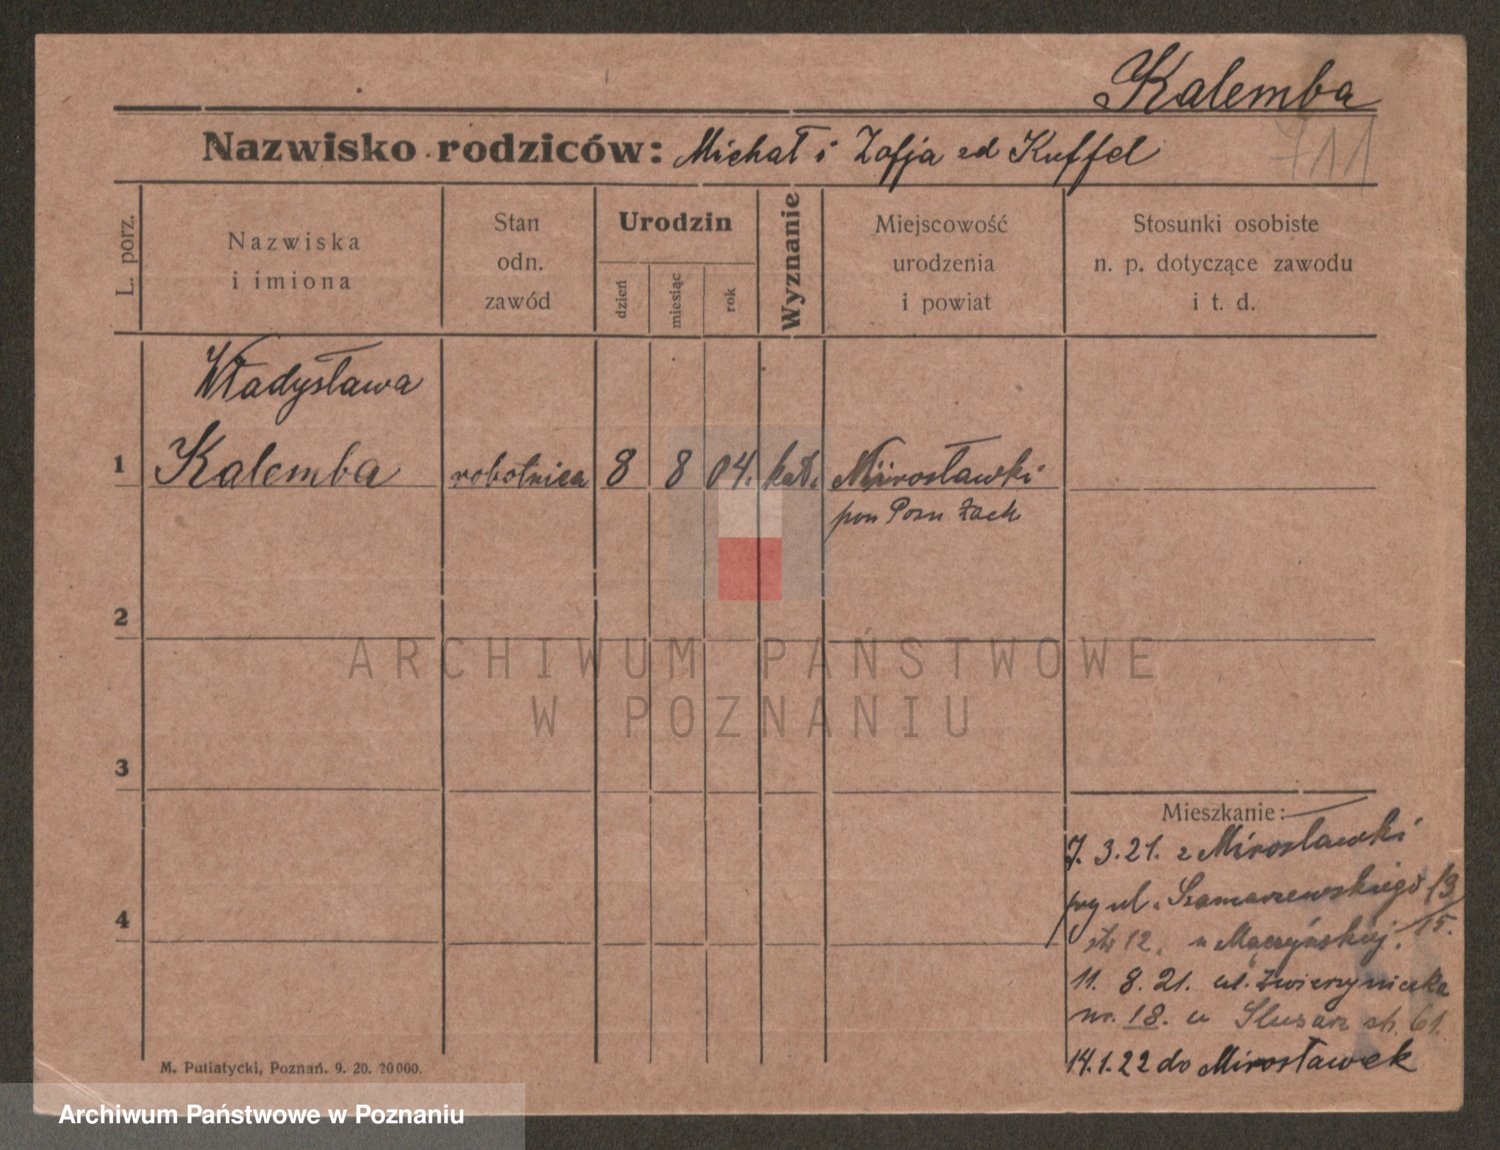 Kalemba
Nazwisko rodziców: Michał i Zofja zd Kuffel
711
L. porz.
Nazwiska
i imiona
Stan
odn.
zawód
Urodzin
dzień
miesiąc
rok
Wyznanie
Miejscowość
urodzenia
i powiat
Stosunki osobiste
n. p. dotyczące zawodu
i t. d.
Władysława
1 Kalemba robotnica 8 8 04. kat. Mirosławki
pow Pozn Zach
2
ARCHIWUM PAŃSTWOWE
W POZNANIU
3
Mieszkanie:
7. 3. 21. z Mirosławki
przy ul. Szamarzewskiego 13/15.
12. u Mączyńskiej.
4
11. 8. 21. ul. Zwierzyniecka
nr. 18. u Slusarz 61.
14.1.22 do Mirosławek
M. Putiatycki, Poznań. 9. 20. 20000.
Archiwum Państwowe w Poznaniu